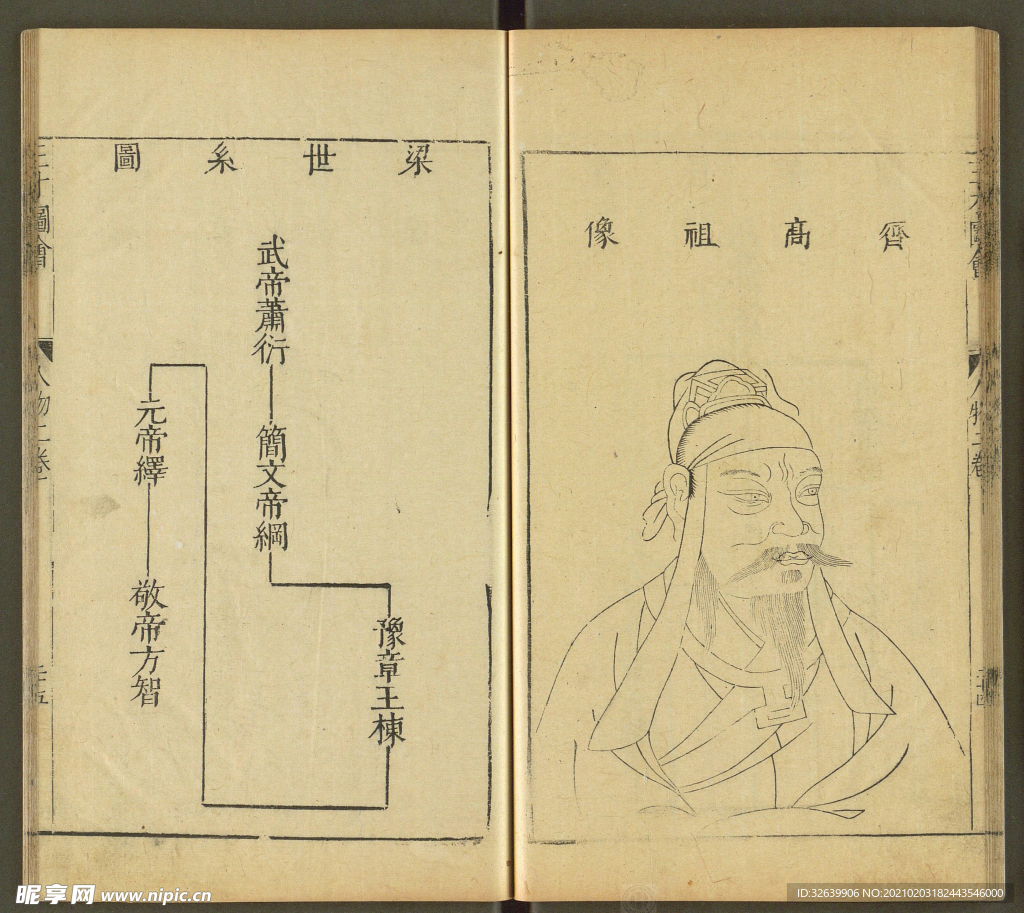 三才圖會
人物二卷
二十四
齊高祖像
梁世系圖
武帝蕭衍
簡文帝綱
豫章王棟
元帝繹
敬帝方智
三才圖會
人物二卷
二十五
昵享网 www.nipic.cn
ID:32639906 NO:20210203182443546000